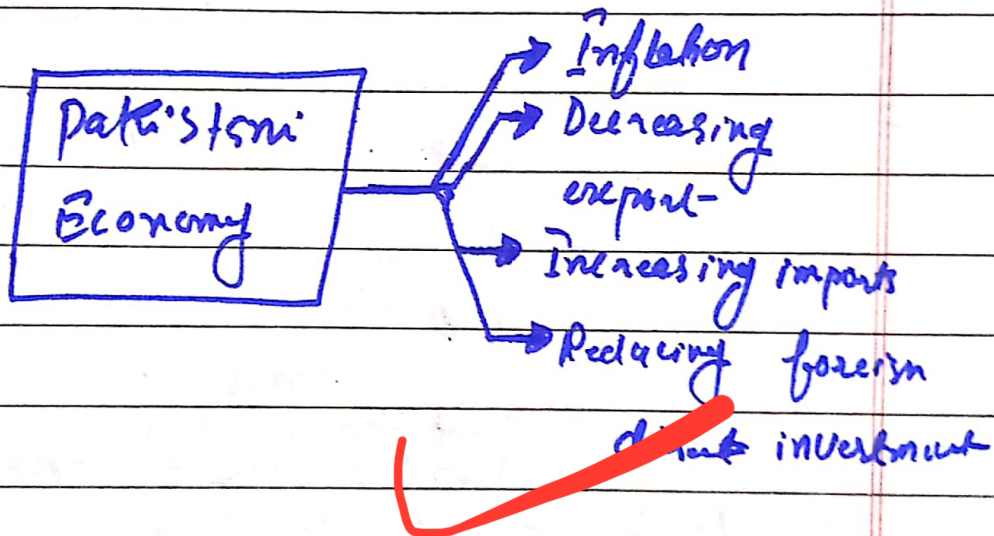 Pakistani
Economy
Inflation
Decreasing
export
Increasing imports
Reducing foreign
direct investment